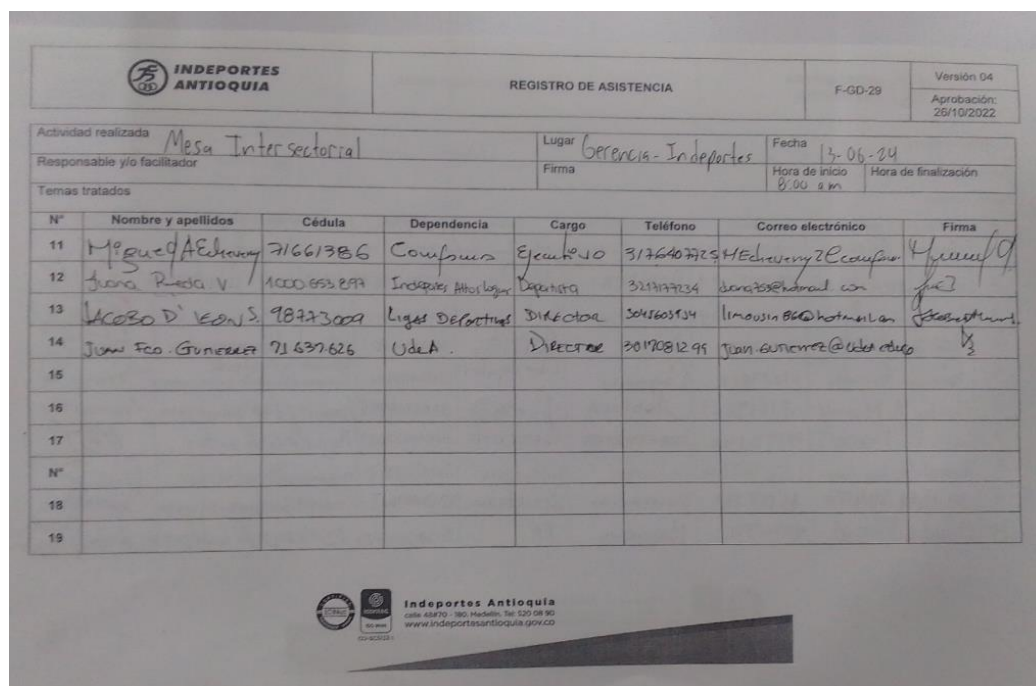 INDEPORTES
ANTIOQUIA
REGISTRO DE ASISTENCIA
F-GD-29
Versión 04
Aprobación:
26/10/2022
Actividad realizada Mesa Intersectorial
Lugar Gerencia - Indeportes
Fecha 13-06-24
Responsable y/o facilitador
Firma
Hora de inicio 8:00 am
Hora de finalización
Temas tratados
N° Nombre y apellidos Cédula Dependencia Cargo Teléfono Correo electrónico Firma
11 Miguel A Echeverry 71661386 Ejecutivo
12 Juana V Indeportes Deportista
13 JACOBO D' LEON S. 98773009 Ligas Deportivas DIRECTOR
14 JUAN FCO. GUTIERREZ 71637626 UdeA. DIRECTOR 3017081299
15
16
17
N°
18
19
Indeportes Antioquia
calle 48#70 - 180. Medellín. Tel: 520 08 90
www.indeportesantioquia.gov.co